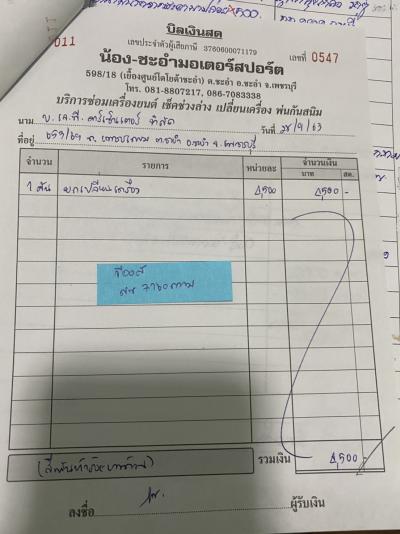 บิลเงินสด
011
เลขประจำตัวผู้เสียภาษี 3760600071179
เลขที่ 0547
น้อง-ชะอำมอเตอร์สปอร์ต
598/18 (เยื้องศูนย์โตโยต้าชะอำ) ต.ชะอำ อ.ชะอำ จ.เพชรบุรี
โทร. 081-8807217, 086-7083338
บริการซ่อมเครื่องยนต์ เช็คช่วงล่าง เปลี่ยนเครื่อง พ่นกันสนิม
นาม บ. เจ.ที. คาร์เซ็นเตอร์ จำกัด วันที่ 28/9/63
ที่อยู่ 659/69 ถ.
จำนวน รายการ หน่วยละ จำนวนเงิน
บาท สต.
1 คัน ยกเปลี่ยนเครื่อง 4,500 4,500 -
รวมเงิน 4,500 -
ลงชื่อ ผู้รับเงิน